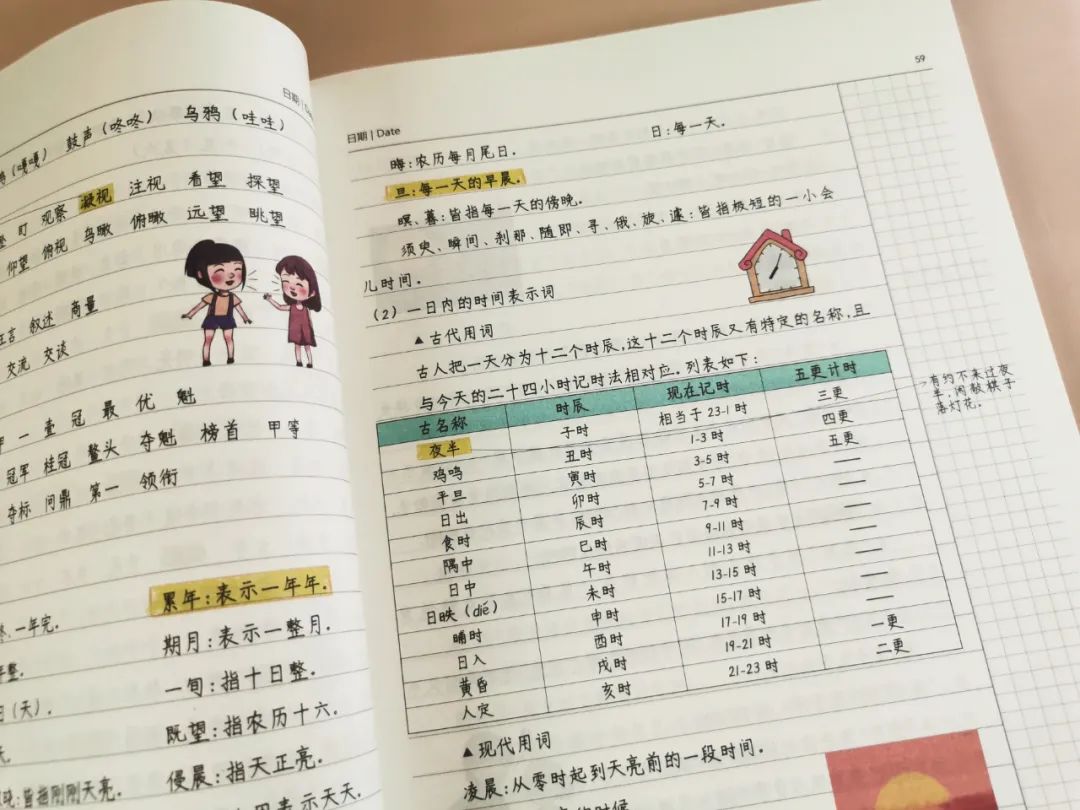 日期
（嘎嘎） 鼓声（咚咚） 乌鸦（哇哇）
盯 观察 凝视 注视 看望 探望
仰望 俯视 鸟瞰 俯瞰 远望 眺望
叙述 商量
交流 交谈
一 壹 冠 最 优 魁
冠军 桂冠 鳌头 夺魁 榜首 甲等
夺标 问鼎 第一 领衔
累年:表示一年年.
一年完. 期月:表示一整月.
一旬:指十日整.
（天）. 既望:指农历十六.
侵晨:指天正亮.
皆指刚刚天亮. 表示天天.
59
日期 | Date
晦:农历每月尾日. 日:每一天.
旦:每一天的早晨.
暝、暮:皆指每一天的傍晚.
须臾、瞬间、刹那、随即、寻、俄、旋、遽:皆指极短的一小会
儿时间.
（2）一日内的时间表示词
▲古代用词
古人把一天分为十二个时辰,这十二个时辰又有特定的名称,且
与今天的二十四小时记时法相对应.列表如下:
古名称 时辰 现在记时 五更计时
夜半 子时 相当于 23-1 时 三更
鸡鸣 丑时 1-3 时 四更
平旦 寅时 3-5 时 五更
日出 卯时 5-7 时 —
食时 辰时 7-9 时 —
隅中 巳时 9-11 时 —
日中 午时 11-13 时 —
日昳（dié） 未时 13-15 时 —
晡时 申时 15-17 时 —
日入 酉时 17-19 时 —
黄昏 戌时 19-21 时 一更
人定 亥时 21-23 时 二更
有约不来过夜
半,闲敲棋子
落灯花.
▲现代用词
凌晨:从零时起到天亮前的一段时间.